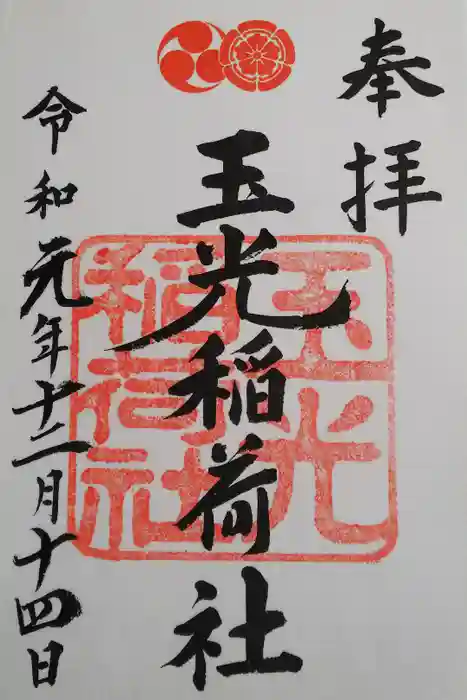 奉拝
玉光稲荷社
令和元年十二月十四日
玉光
稲荷社